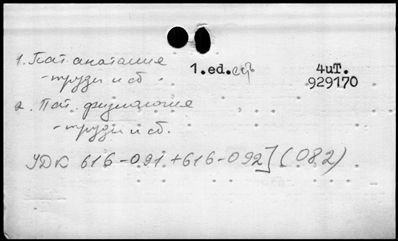 1. Пат. анатомия
- труды и сб.
1.ed.
4uT.
929170
2. Пат. физиология
- труды и сб.
УДК 616-091+616-092](082)